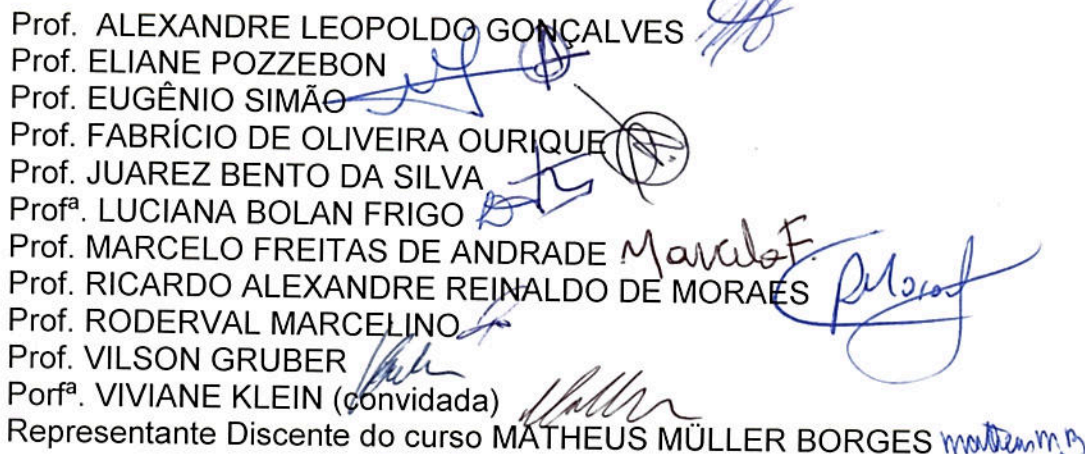 Prof. ALEXANDRE LEOPOLDO GONÇALVES
Prof. ELIANE POZZEBON
Prof. EUGÊNIO SIMÃO
Prof. FABRÍCIO DE OLIVEIRA OURIQUE
Prof. JUAREZ BENTO DA SILVA
Profª. LUCIANA BOLAN FRIGO
Prof. MARCELO FREITAS DE ANDRADE Marcelo F.
Prof. RICARDO ALEXANDRE REINALDO DE MORAES
Prof. RODERVAL MARCELINO
Prof. VILSON GRUBER
Porfª. VIVIANE KLEIN (convidada)
Representante Discente do curso MATHEUS MÜLLER BORGES Matheus M. B